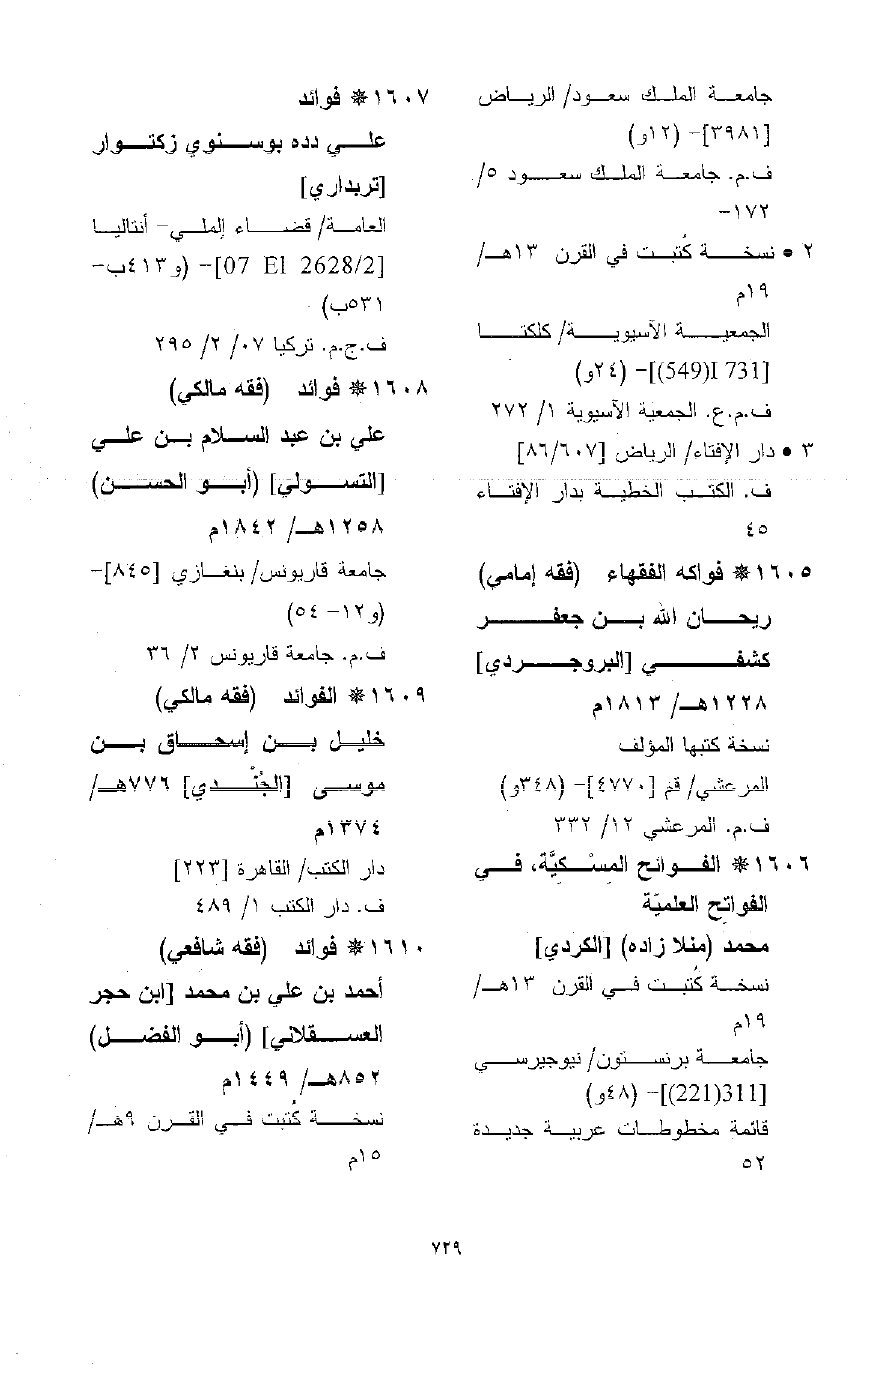 جامعة الملك سعود/ الرياض
[٣٩٨١]- (١٢و)
ف.م. جامعة الملك سعود ٥/
١٧٢-
٢ • نسخة كُتبت في القرن ١٣هـ/
١٩م
الجمعية الآسيوية/ كلكتا
[731 I(549)]- (٢٤و)
ف.م.ع. الجمعية الآسيوية ١/ ٢٧٢
٣ • دار الإفتاء/ الرياض [٨٦/٦٠٧]
ف. الكتب الخطية بدار الإفتاء
٤٥
١٦٠٥ * فواكه الفقهاء (فقه إمامي)
ريحان الله بن جعفر
كشفي [البروجردي]
١٢٢٨هـ/ ١٨١٣م
نسخة كتبها المؤلف
المرعشي/ قم [٤٧٧٠]- (٣٤٨و)
ف.م. المرعشي ١٢/ ٣٣٢
١٦٠٦ * الفوانح المِسْكيَّة، في
الفواتح العلميّة
محمد (منلا زاده) [الكردي]
نسخة كُتبت في القرن ١٣هـ/
١٩م
جامعة برنستون/ نيوجيرسي
[311(221)]- (٤٨و)
قائمة مخطوطات عربية جديدة
٥٢
١٦٠٧ * فوائد
علي دده بوسنوي زكتوار
[تربداري]
العامة/ قضاء إلملي- أنتاليا
[07 El 2628/2]- (و٤١٣ب-
٥٣١ب)
ف.ج.م. تركيا ٠٧/ ٢/ ٢٩٥
١٦٠٨ * فوائد (فقه مالكي)
علي بن عبد السلام بن علي
[التسولي] (أبو الحسن)
١٢٥٨هـ/ ١٨٤٢م
جامعة قاريونس/ بنغازي [٨٤٥]-
(و١٢- ٥٤)
ف.م. جامعة قاريونس ٢/ ٣٦
١٦٠٩ * الفوائد (فقه مالكي)
خليل بن إسحاق بن
موسى [الجُنْدي] ٧٧٦هـ/
١٣٧٤م
دار الكتب/ القاهرة [٢٢٣]
ف. دار الكتب ١/ ٤٨٩
١٦١٠ * فوائد (فقه شافعي)
أحمد بن علي بن محمد [ابن حجر
العسقلاني] (أبو الفضل)
٨٥٢هـ/ ١٤٤٩م
نسخة كُتبت في القرن ٩هـ/
١٥م
٧٢٩